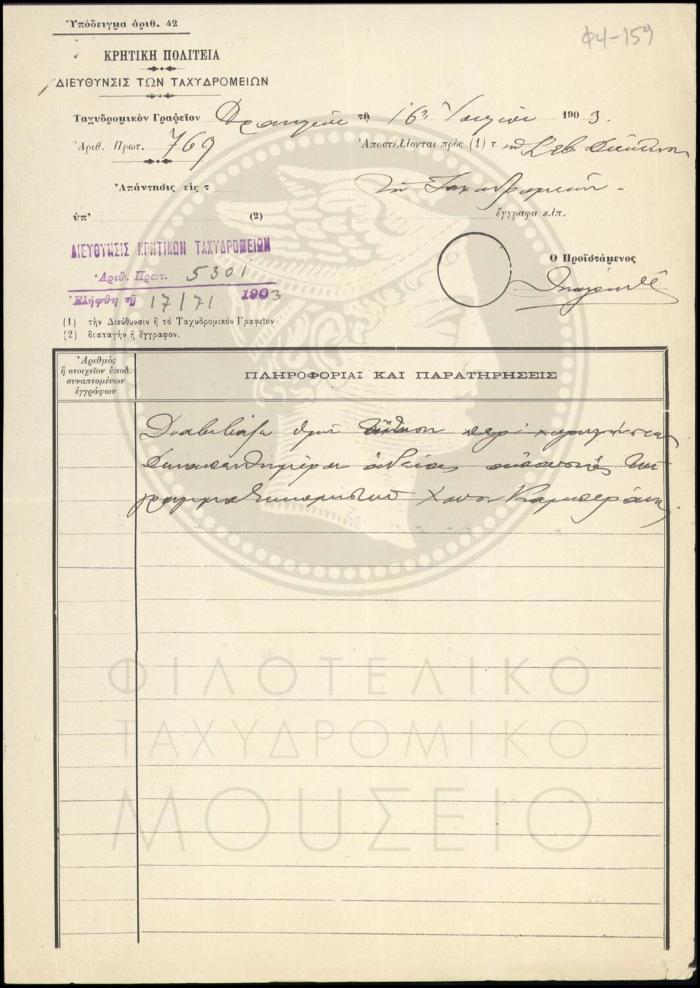 Ὑπόδειγμα ἀριθ. 42
Φ4-159
ΚΡΗΤΙΚΗ ΠΟΛΙΤΕΙΑ
ΔΙΕΥΘΥΝΣΙΣ ΤΩΝ ΤΑΧΥΔΡΟΜΕΙΩΝ
Ταχυδρομικὸν Γραφεῖον τῇ 16ῃ 1903
Ἀριθ. Πρωτ. 769 Ἀποστέλλονται πρὸς (1) τ Σεβ. Διεύθυνσιν
Ἀπάντησις εἰς τ τῶν Ταχυδρομείων
ὑπ' (2) ἔγγραφα κ.ἱπ.
ΔΙΕΥΘΥΝΣΙΣ ΚΡΗΤΙΚΩΝ ΤΑΧΥΔΡΟΜΕΙΩΝ
Ἀριθ. Πρωτ. 5301
Ἐλήφθη τῇ 17/7/ 1903
Ὁ Προϊστάμενος
(1) τὴν Διεύθυνσιν ἢ τὸ Ταχυδρομικὸν Γραφεῖον
(2) διαταγὴν ἢ ἔγγραφον.
Ἀριθμὸς
ἢ στοιχεῖον ὑποδ.
συναπτομένων
ἐγγράφων
ΠΛΗΡΟΦΟΡΙΑΙ ΚΑΙ ΠΑΡΑΤΗΡΗΣΕΙΣ
Διαβιβάζω περὶ χορηγήσεως
δεκαπενθημέρου ἀδείας ἀπουσίας τοῦ
γραμματοκομιστοῦ
ΦΙΛΟΤΕΛΙΚΟ
ΤΑΧΥΔΡΟΜΙΚΟ
ΜΟΥΣΕΙΟ